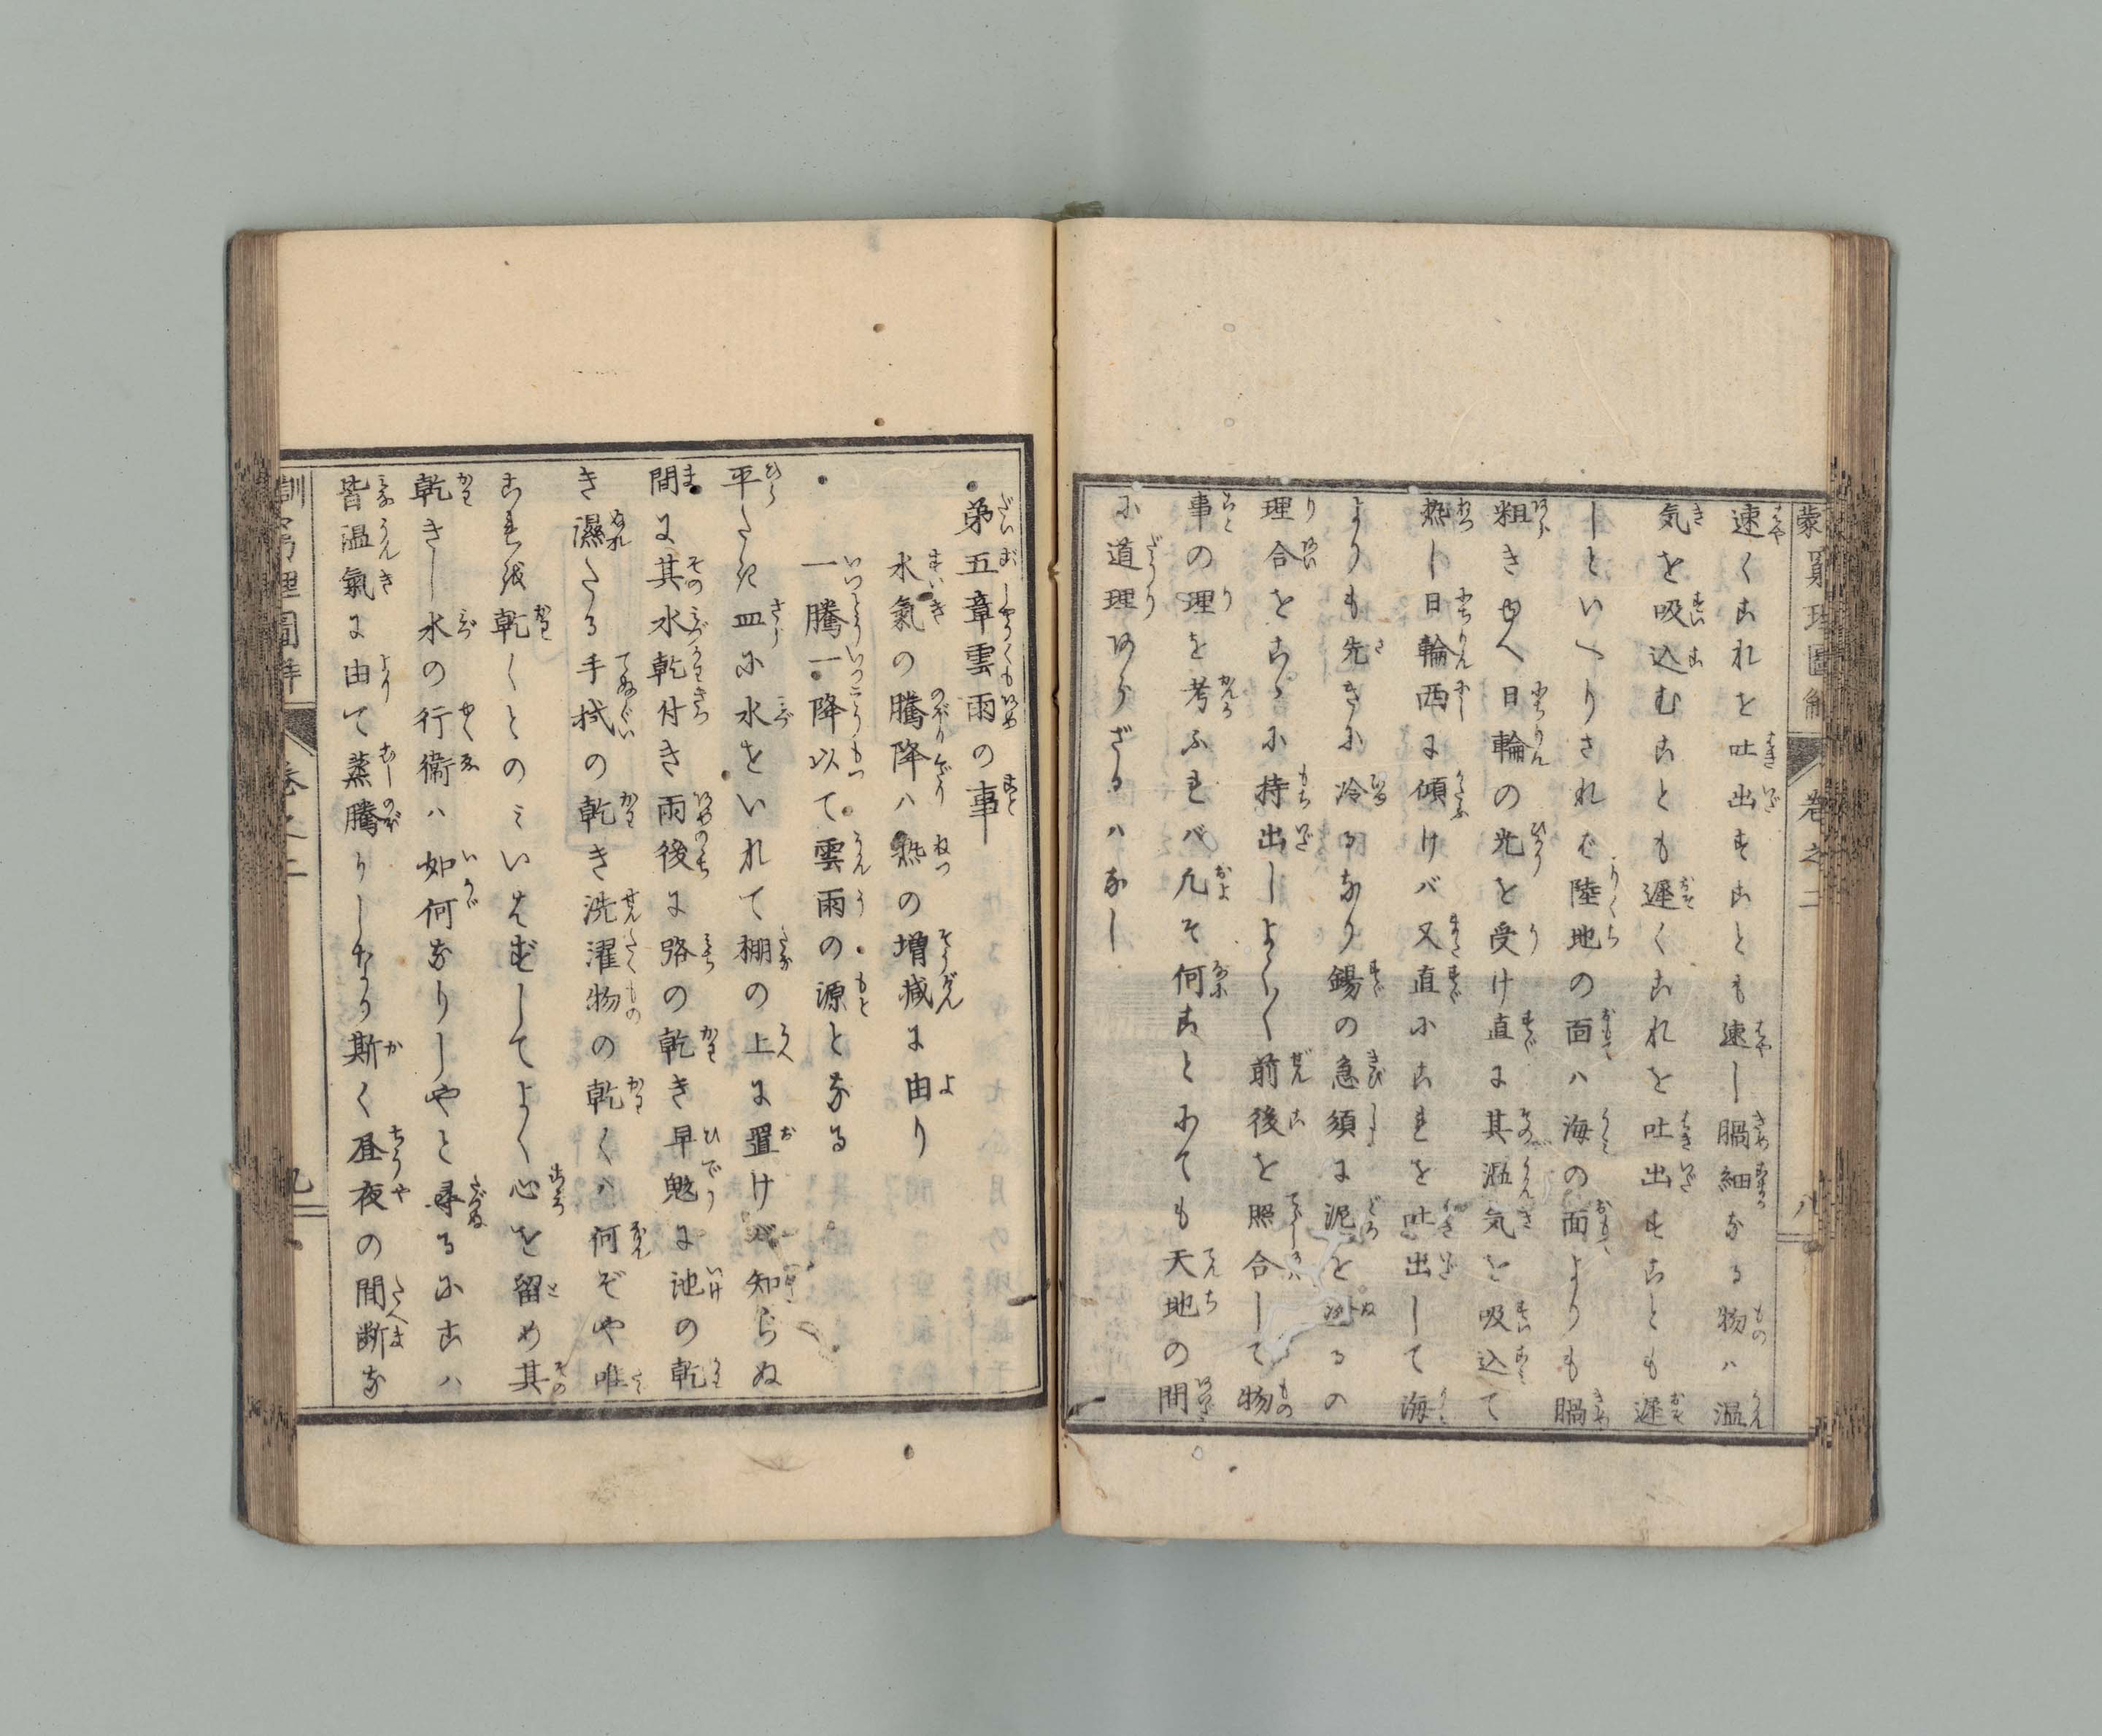 蒙窮理圖解 巻之二 八
速くこれを吐出すことも速し膈細なる物ハ温
気を吸込むことも遲くこれを吐出すことも遲
しといへりされば陸地の面ハ海の面よりも膈
粗きゆへ日輪の光を受け直に其温気を吸込て
熱し日輪西に傾けバ又直にこれを吐出して海
よりも先きに冷るなり錫の急須に泥を塗るの
理合をこゝに持出しよく〳〵前後を照合して物
事の理を考ふれバ凡そ何ことにても天地の間
に道理あらざるハなし
第五章雲雨の事
水氣の騰降ハ熱の増減に由り
一騰一降以て雲雨の源となる
平たき皿に水をいれて棚の上に置けバ知らぬ
間に其水乾付き雨後に路の乾き早魃に池の乾
き濕たる手拭の乾き洗濯物の乾くハ何ぞや唯
これを乾くとのミいはずしてよく心を留め其
乾きし水の行衞ハ如何なりしやと尋るにこハ
皆温氣に由て蒸騰りしなり斯く昼夜の間断な
訓窮理圖解 巻之二 九